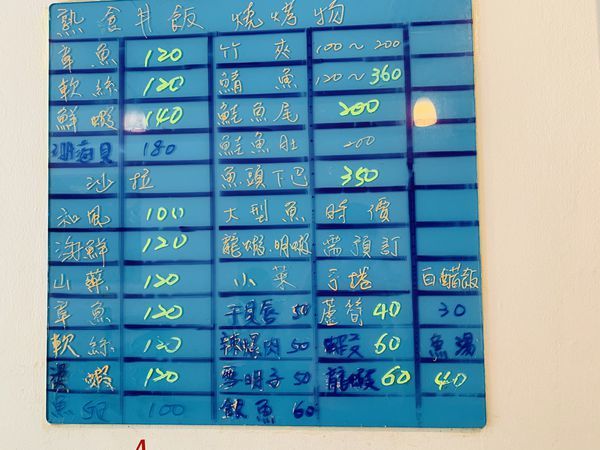 熟食丼飯 燒烤物
章魚 120 竹夾 100~200
軟絲 120 鯖魚 120~360
鮮蝦 140 鮭魚尾 200
珊瑚貝 180 鮭魚肚 200
沙拉 魚頭下巴 350
和風 100 大型魚 時價
海鮮 120 龍蝦.明蝦 需預訂
山藥 120 小菜 手捲 白醋飯
章魚 120 干貝唇 50 蘆筍 40 30
軟絲 120 辣螺肉 50 蝦 60 魚湯
蝦 120 雪明子 50 龍蝦 60 40
魚卵 100 魚 60